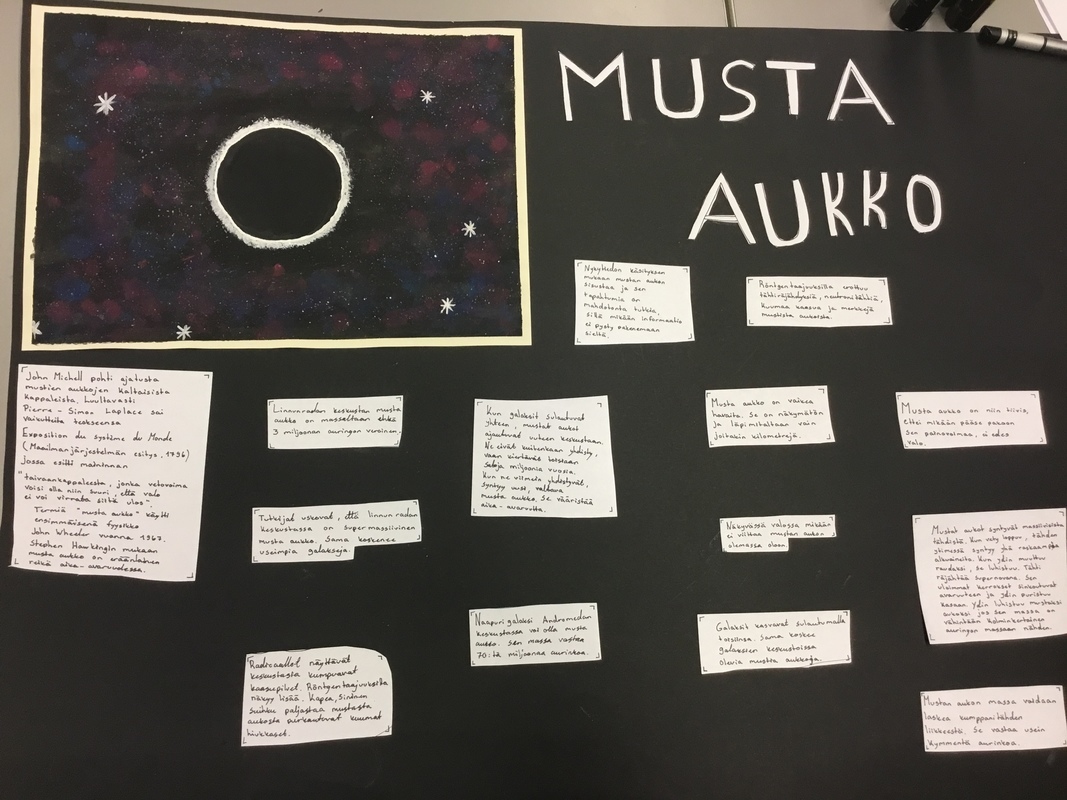 MUSTA
AUKKO
Nykytiedon käsityksen
mukaan mustan aukon
sisustaa ja sen
tapahtumia on
mahdotonta tutkia,
sillä mikään informaatio
ei pysty pakenemaan
sieltä.
Röntgentaajuuksilla erottuu
tähtiräjähdyksiä, neutronitähtiä,
kuumaa kaasua ja merkkejä
mustista aukoista.
John Michell pohti ajatusta
mustien aukkojen kaltaisista
kappaleista. Luultavasti
Pierre-Simon Laplace sai
vaikutteita teokseensa
Exposition du système du Monde
(Maailmanjärjestelmän esitys, 1796)
jossa esitti maininnan
"taivaankappaleesta, jonka vetovoima
voisi olla niin suuri, että valo
ei voi virrata siltä ulos".
Termiä "musta aukko" käytti
ensimmäisenä fyysikko
John Wheeler vuonna 1967.
Stephen Hawkingin mukaan
musta aukko on eräänlainen
reikä aika-avaruudessa.
Linnunradan keskustan musta
aukko on massaltaan ehkä
3 miljoonan auringon veroinen.
Kun galaksit sulautuvat
yhteen, mustat aukot
ajautuvat uuteen keskustaan.
Ne eivät kuitenkaan yhdisty,
vaan kiertävät toistaan
satoja miljoonia vuosia.
Kun ne viimein yhdistyvät,
syntyy uusi, valtava
musta aukko. Se vääristää
aika-avaruutta.
Musta aukko on vaikea
havaita. Se on näkymätön
ja läpimitaltaan vain
joitakin kilometrejä.
Musta aukko on niin tiivis,
ettei mikään pääse pakoon
sen painovoimaa, ei edes
valo.
Tutkijat uskovat, että linnunradan
keskustassa on supermassiivinen
musta aukko. Sama koskenee
useimpia galakseja.
Näkyvässä valossa mikään
ei viittaa mustan aukon
olemassa oloon.
Mustat aukot syntyvät massiivisista
tähdistä. Kun vety loppuu, tähden
ytimessä syntyy yhä raskaampia
alkuaineita. Kun ydin muuttuu
raudaksi, se luhistuu. Tähti
räjähtää supernovana. Sen
uloimmat kerrokset sinkoutuvat
avaruuteen ja ydin puristuu
kasaan. Ydin luhistuu mustaksi
aukoksi jos sen massa on
vähintään kolminkertainen
auringon massaan nähden.
Naapurigalaksi Andromedan
keskustassa voi olla musta
aukko. Sen massa vastaa
70:tä miljoonaa aurinkoa.
Galaksit kasvavat sulautumalla
toisiinsa. Sama koskee
galaksien keskustoissa
olevia mustia aukkoja.
Radioaallot näyttävät
keskustasta kumpuavat
kaasupilvet. Röntgentaajuuksilla
näkyy lisää. Kapea, sininen
suihku paljastaa mustasta
aukosta purkautuvat kuumat
hiukkaset.
Mustan aukon massa voidaan
laskea kumppanitähden
liikkeestä. Se vastaa usein
kymmentä aurinkoa.